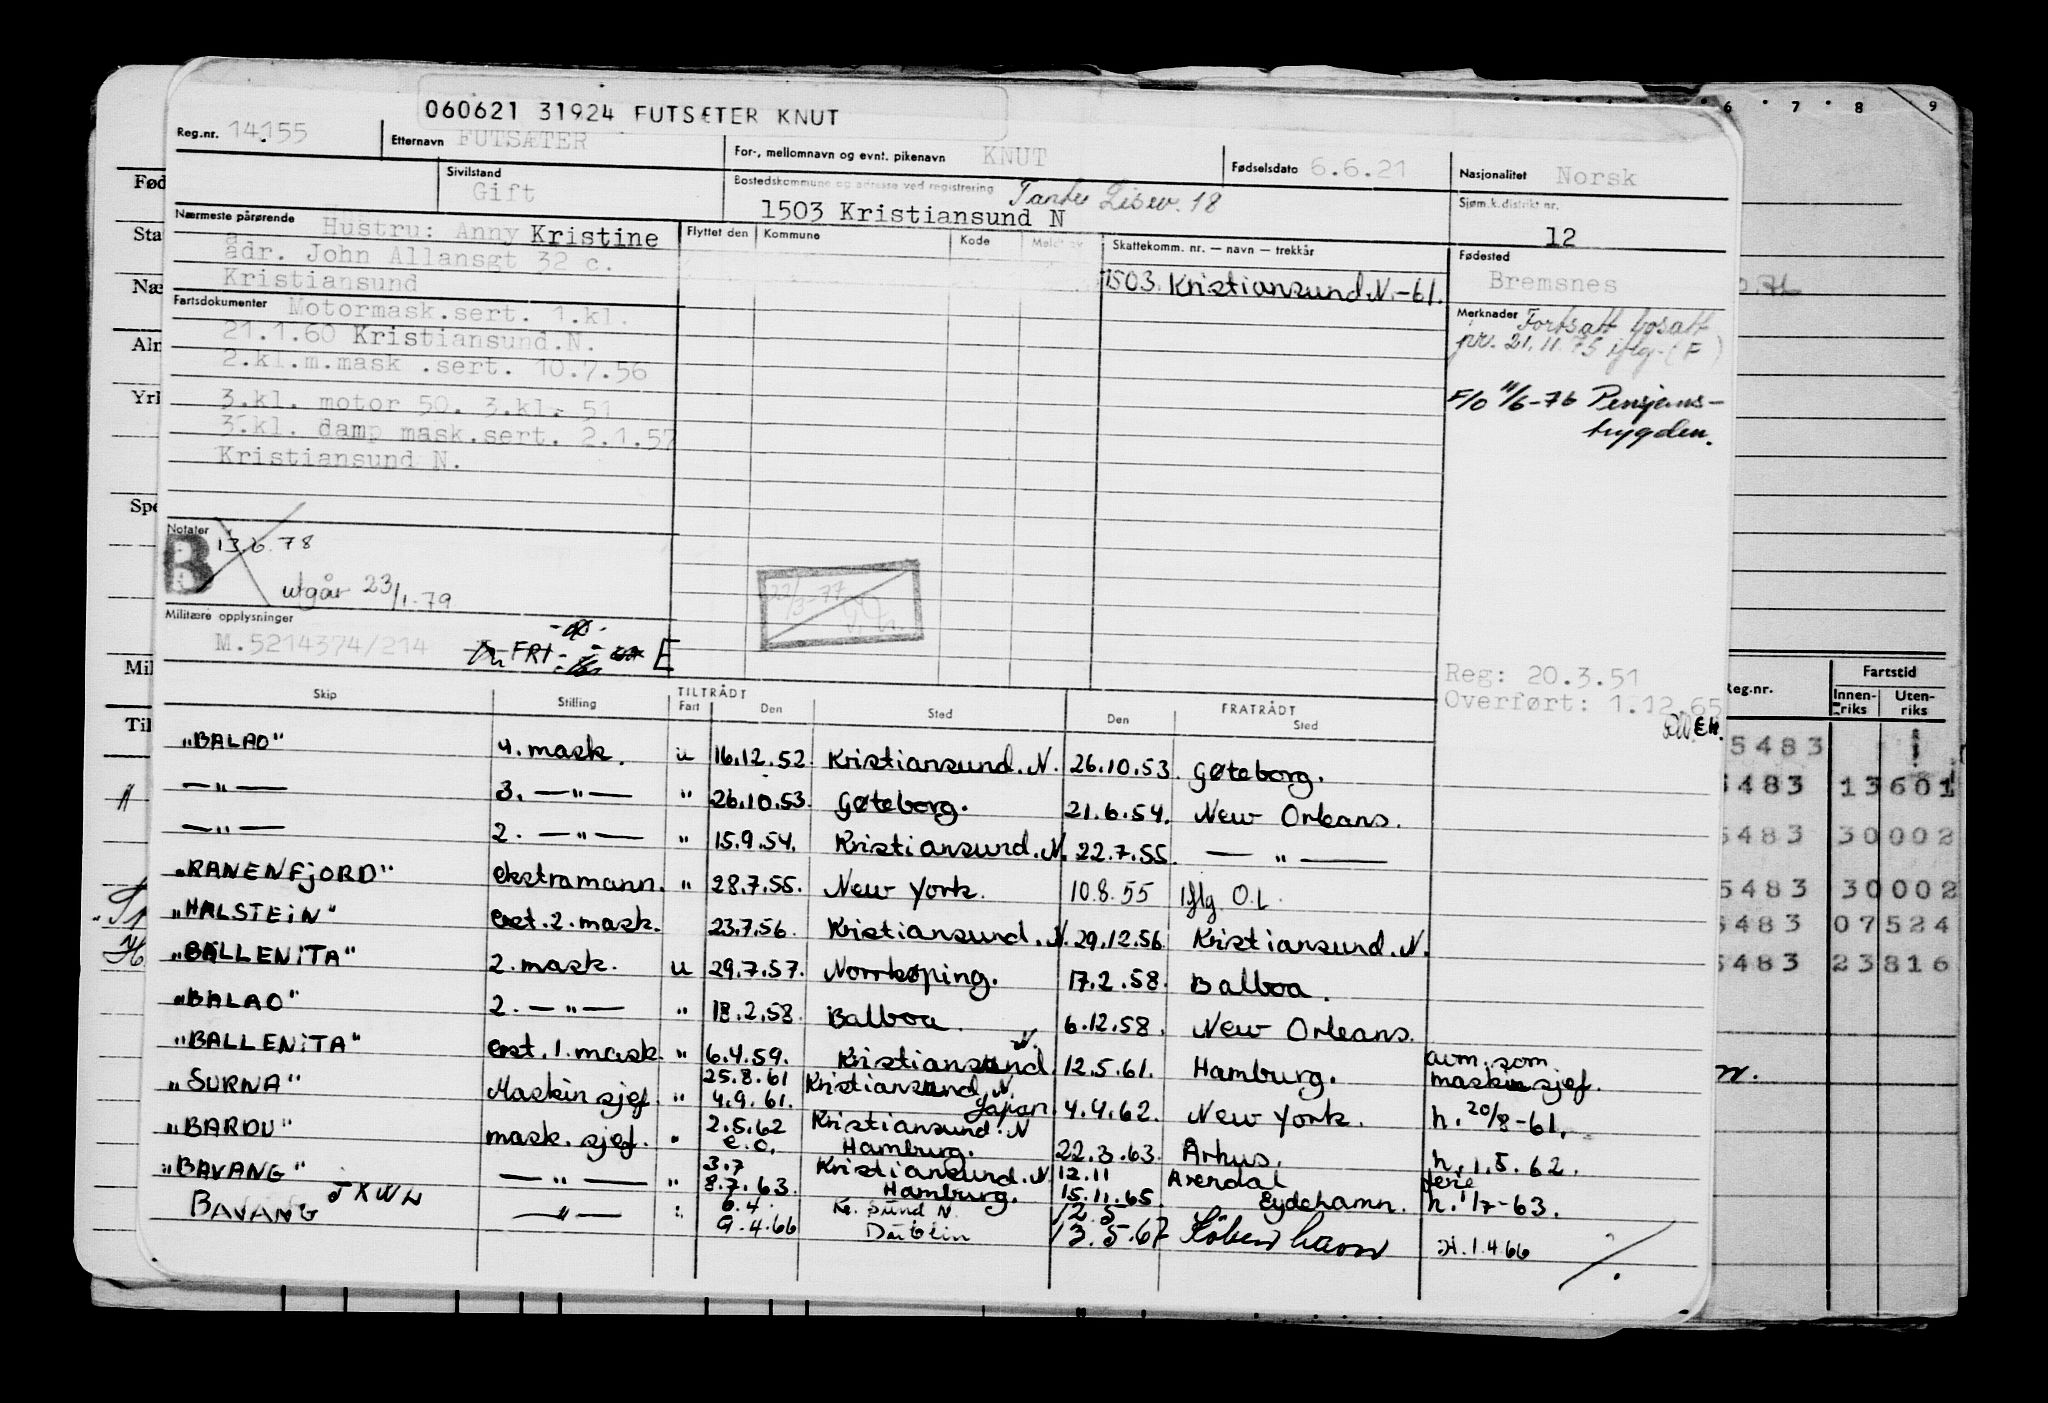 060621 31924 FUTSÆTER KNUT
Reg.nr. 14155 Etternavn FUTSÆTER For-, mellomnavn og evnt. pikenavn KNUT Fødselsdato 6.6.21 Nasjonalitet Norsk
Sivilstand Gift Bostedskommune og adresse ved registrering 1503 Kristiansund N 18 Sjøm.k.distrikt nr. 12
Nærmeste pårørende Hustru: Anny Kristine
adr. John Allansgt 32 c.
Kristiansund
Flyttet den Kommune Kode Meldt av Skattekomm. nr. — navn — trekkår
1503. Kristiansund N.-61.
Fødested Bremsnes
Fartsdokumenter Motormask.sert. 1.kl.
21.1.60 Kristiansund.N.
2.kl.m.mask .sert. 10.7.56
3.kl. motor 50. 3.kl. 51
3.kl. damp mask.sert. 2.1.57
Kristiansund N.
Merknader Fortsatt bosatt
pr. 21.11.75 iflg. (F)
F/O 11/6-76 Pensjons-
trygden.
Notater
B 13.6.78
utgår 23/1-79
22/3-77
Militære opplysninger
M.5214374/214 FRI E
Reg: 20.3.51
Overført: 1.12.65
EH.
Skip Stilling TILTRÅDT Fart Den Sted FRATRÅDT Den Sted
"BALAO" 4. mask. u 16.12.52 Kristiansund.N. 26.10.53. Gøteborg.
—"— 3. —"— " 26.10.53. Gøteborg. 21.6.54. New Orleans.
—"— 2. —"— " 15.9.54. Kristiansund.N. 22.7.55. —"—
"RANENFJORD" ekstramann. " 28.7.55. New York. 10.8.55 Iflg O.L.
"HALSTEIN" erst.2.mask. 23.7.56. Kristiansund.N. 29.12.56. Kristiansund.N.
"BALLENITA" 2. mask. u 29.7.57. Norrkøping. 17.2.58. Balboa.
"BALAO" 2. —"— " 18.2.58. Balboa. 6.12.58. New Orleans.
"BALLENITA" erst.1.mask. " 6.4.59. Kristiansund N. 12.5.61. Hamburg. avm. som maskinsjef.
"SURNA" Maskinsjef. " 25.8.61 Kristiansund N.
4.9.61. Japan. 4.4.62. New York. h. 20/8-61.
"BARDU" mask.sjef. " 2.5.62 Kristiansund.N
e.o. Hamburg. 22.3.63. Arhus. h.1.5.62.
"BAVANG" —"— " 3.7 Kristiansund.N 12.11 Arendal ferie
8.7.63. Hamburg. 15.11.65. Eydehamn. h. 1/7-63.
BAVANG JXWL —"— 6.4. Kr. sund N. 12.5
9.4.66 Dublin 13.5.67 København H.1.4.66
Fød
Sta
Næ
Alm
Yrk
Spe
Mil
Til
6 7 8 9
Reg.nr. Fartstid
Innen-riks Uten-riks
5483
5483 13601
5483 30002
5483 30002
5483 07524
5483 23816